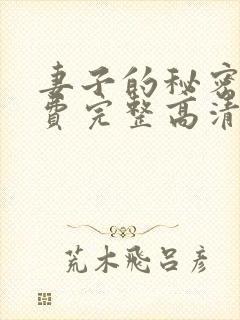 妻子的秘密
费完整高清
荒木飛呂彦